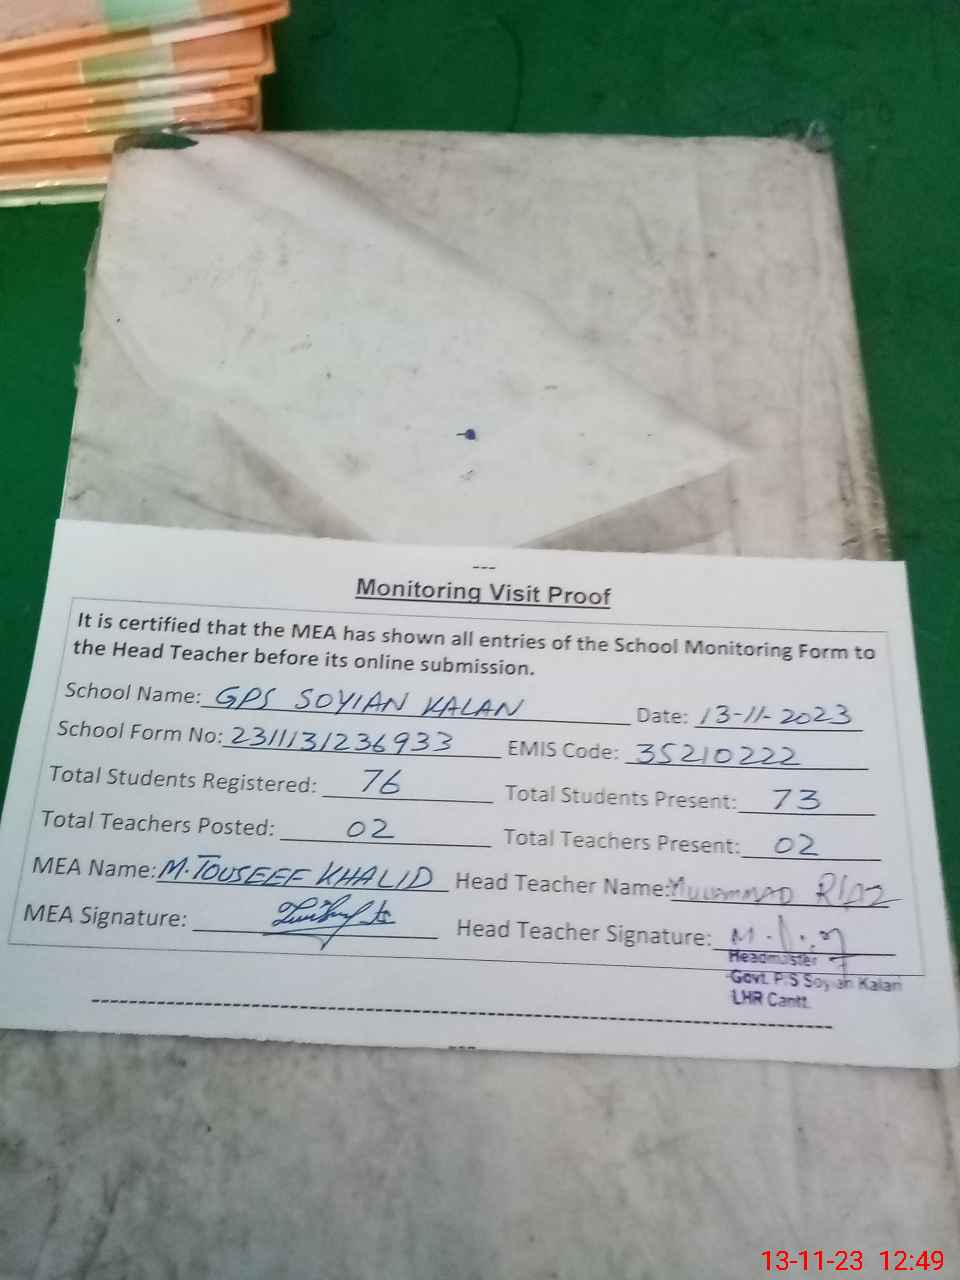 ---
Monitoring Visit Proof
It is certified that the MEA has shown all entries of the School Monitoring Form to
the Head Teacher before its online submission.
School Name: GPS SOYIAN KALAN Date: 13-11-2023
School Form No: 2311131236933 EMIS Code: 35210222
Total Students Registered: 76 Total Students Present: 73
Total Teachers Posted: 02 Total Teachers Present: 02
MEA Name: M. TOUSEEF KHALID Head Teacher Name: Muhammad RIAZ
MEA Signature: Head Teacher Signature:
Headmaster
Govt. P.S Soyian Kalan
LHR Cantt.
13-11-23 12:49